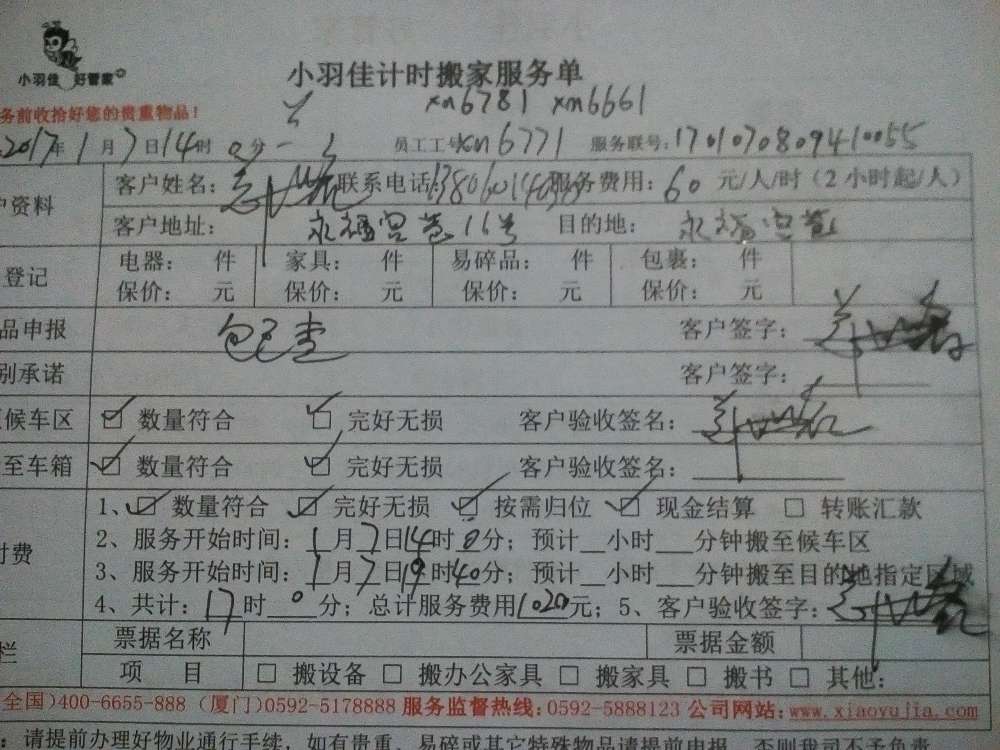 小羽佳 好管家
小羽佳计时搬家服务单
xm6781 xm6661
务前收拾好您的贵重物品！
2017年1月7日14时0分 员工工号xm6771 服务联号：170107080941 0055
户资料 客户姓名： 联系电话： 服务费用：60元/人/时（2小时起/人）
客户地址：永福宫巷16号 目的地：永福宫巷
登记 电器： 件 家具： 件 易碎品： 件 包裹： 件
保价： 元 保价： 元 保价： 元 保价： 元
品申报 客户签字：
别承诺 客户签字：
候车区 ☑ 数量符合 ☑ 完好无损 客户验收签名：
至车箱 ☑ 数量符合 ☑ 完好无损 客户验收签名：
1、☑ 数量符合 ☑ 完好无损 ☑ 按需归位 ☑ 现金结算 □ 转账汇款
2、服务开始时间：1月7日14时0分；预计__小时___分钟搬至候车区
付费 3、服务开始时间：1月7日19时40分；预计__小时___分钟搬至目的地指定区域
4、共计：17时0分；总计服务费用1020元；5、客户验收签字：
栏 票据名称 票据金额
项 目 □ 搬设备 □ 搬办公家具 □ 搬家具 □ 搬书 □ 其他：
全国）400-6655-888（厦门）0592-5178888 服务监督热线：0592-5888123 公司网站：www.xiaoyujia.com
：请提前办理好物业通行手续，如有贵重、易碎或其它特殊物品请提前申报，否则我司不予负责